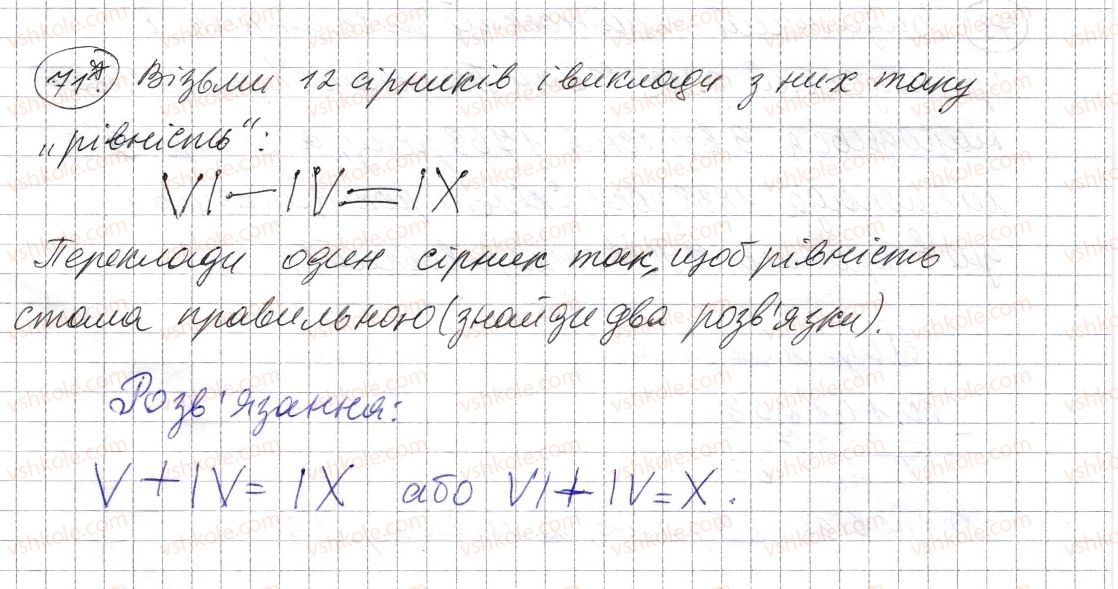 71*. Візьми 12 сірників і виклади з них таку
„рівність":
VI — IV = IX
Переклади один сірник так, щоб рівність
стала правильною (знайди два розв'язки).
Розв'язання:
V + IV = IX або VI + IV = X.